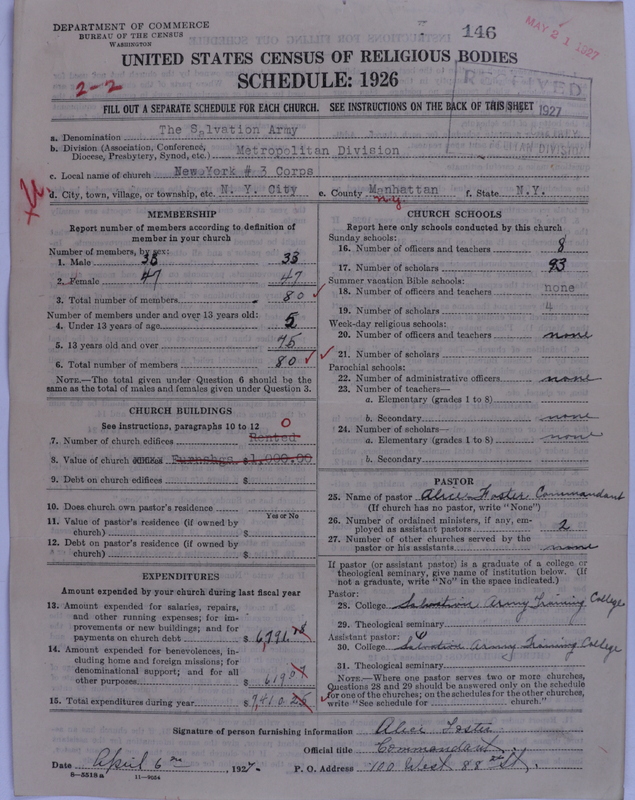 DEPARTMENT OF COMMERCE
BUREAU OF THE CENSUS
WASHINGTON
146
MAY 21 1927
UNITED STATES CENSUS OF RELIGIOUS BODIES
SCHEDULE: 1926
2-2
RECEIVED
1927
FILL OUT A SEPARATE SCHEDULE FOR EACH CHURCH. SEE INSTRUCTIONS ON THE BACK OF THIS SHEET
a. Denomination The Salvation Army
b. Division (Association, Conference, Diocese, Presbytery, Synod, etc.) Metropolitan Division
c. Local name of church New York # 3 Corps
d. City, town, village, or township, etc. N. Y. City e. County Manhattan f. State N.Y.
N.Y.
MEMBERSHIP
Report number of members according to definition of
member in your church
Number of members, by sex:
1. Male 33 33
2. Female 47 47
3. Total number of members 80
Number of members under and over 13 years old:
4. Under 13 years of age 5
5. 13 years old and over 75
6. Total number of members 80
NOTE.—The total given under Question 6 should be the
same as the total of males and females given under Question 3.
CHURCH BUILDINGS
See instructions, paragraphs 10 to 12
0
7. Number of church edifices Rented
8. Value of church Furnshgs $1,000.00
9. Debt on church edifices $
10. Does church own pastor's residence
Yes or No
11. Value of pastor's residence (if owned by
church) $
12. Debt on pastor's residence (if owned by
church) $
EXPENDITURES
Amount expended by your church during last fiscal year
13. Amount expended for salaries, repairs,
and other running expenses; for im-
provements or new buildings; and for
payments on church debt $ 6,791.18
14. Amount expended for benevolences, in-
cluding home and foreign missions; for
denominational support; and for all
other purposes $ 619.07
15. Total expenditures during year $ 7,410.25
CHURCH SCHOOLS
Report here only schools conducted by this church
Sunday schools:
16. Number of officers and teachers 8
17. Number of scholars 93
Summer vacation Bible schools:
18. Number of officers and teachers none
19. Number of scholars
Week-day religious schools:
20. Number of officers and teachers none
21. Number of scholars
Parochial schools:
22. Number of administrative officers none
23. Number of teachers—
a. Elementary (grades 1 to 8)
b. Secondary none
24. Number of scholars—
a. Elementary (grades 1 to 8) none
b. Secondary
PASTOR
25. Name of pastor Alice Foster Commandant
(If church has no pastor, write "None")
26. Number of ordained ministers, if any, em-
ployed as assistant pastors 2
27. Number of other churches served by the
pastor or his assistants none
If pastor (or assistant pastor) is a graduate of a college or
theological seminary, give name of institution below. (If
not a graduate, write "No" in the space indicated.)
Pastor:
28. College Salvation Army Training College
29. Theological seminary
Assistant pastor:
30. College Salvation Army Training College
31. Theological seminary
NOTE.—Where one pastor serves two or more churches,
Questions 28 and 29 should be answered only on the schedule
for one of the churches; on the schedules for the other churches,
write "See schedule for church."
Signature of person furnishing information Alice Foster
Official title Commandant
Date April 6th, 1927. P. O. Address 100 West 88th St.
8-5518 a 11-9024